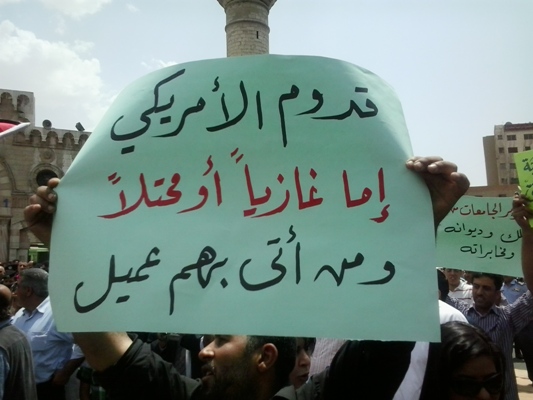 قدوم الأمريكي
إما غازياً أو محتلاً
ومن أتى بهم عميل
الجامعات
وديوانه
ومخابراته